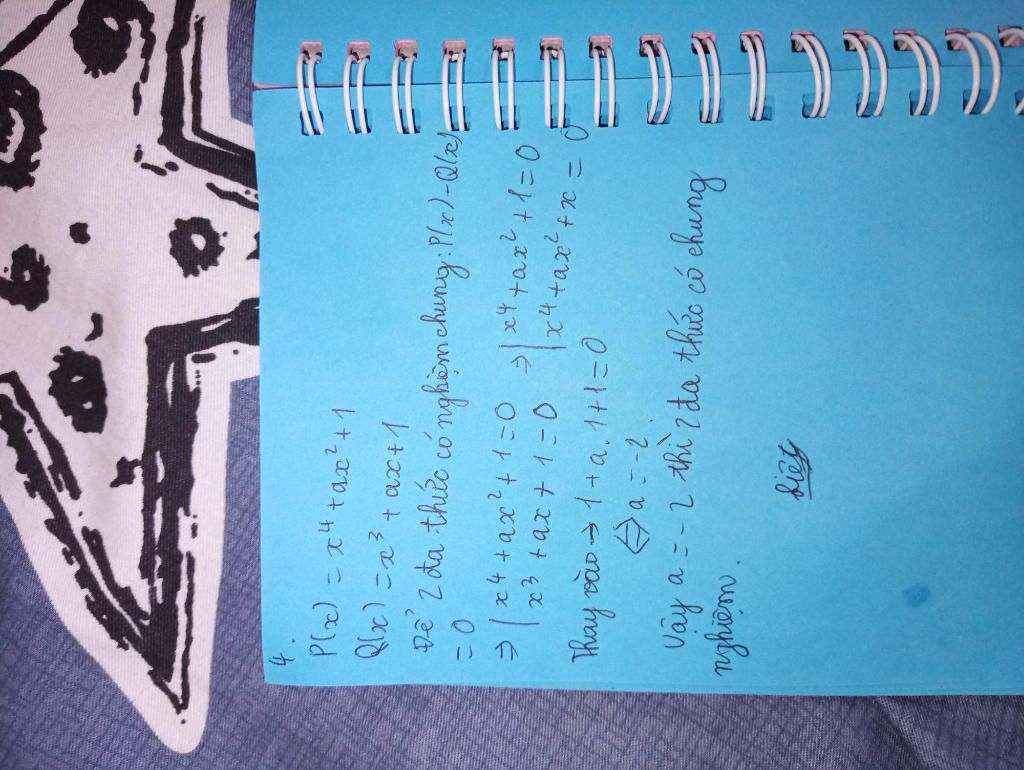 4.
P(x) = x⁴ + ax² + 1
Q(x) = x³ + ax + 1
Để 2 đa thức có nghiệm chung: P(x) - Q(x)
= 0
⇒ | x⁴ + ax² + 1 = 0 ⇒ | x⁴ + ax² + 1 = 0
| x³ + ax + 1 = 0 | x⁴ + ax² + x = 0
Thay vào → 1 + a.1 + 1 = 0
⇔ a = -2.
Vậy a = -2 thì 2 đa thức có chung
nghiệm.